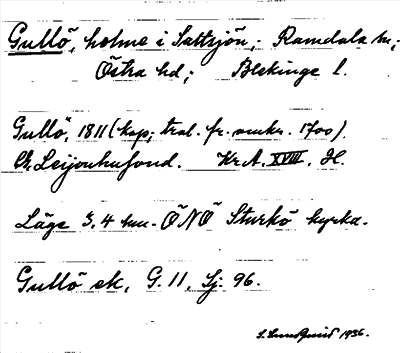 Gullö, holme i Saltsjön; Ramdala sn;
Östra hd; Blekinge l.
Gullö, 1811 (kop; tral. fr. omkr. 1700).
Ch. Leijonhufvud. Kr A. XVIII. H.
Läge 3,4 km. ÖNÖ Sturkö kyrka.
Gullö ek, G. 11, Lj. 96.
S. Lundquist 1936.